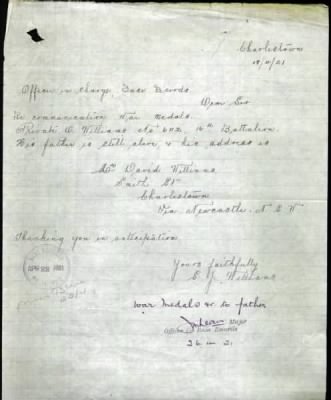 Charlestown
18/4/21
Officer in Charge, Base Records
Dear Sir
Re communication War Medals.
Private O. Williams No 6112, 16th Battalion.
His father is still alive, & his address is
Mr David Williams
Smith St
Charlestown
Via Newcastle. N S W
Thanking you in anticipation
Yours faithfully
Williams
APR 1921
War Medals &c to father
Major
Officer Base Records
21